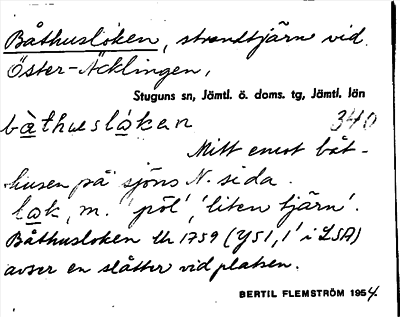 Båthuslöken, strandtjärn vid
Öster-Äcklingen,
Stuguns sn, Jämtl. ö. doms. tg, Jämtl. län
bàthuslǻkan 340
Mitt emot båt-
husen på sjöns N. sida.
lak, m. 'pöl', 'liten tjärn'.
Båthusloken Uh 1759 (Y51, 1' i LSA)
avser en slåtter vid platsen.
BERTIL FLEMSTRÖM 1954.